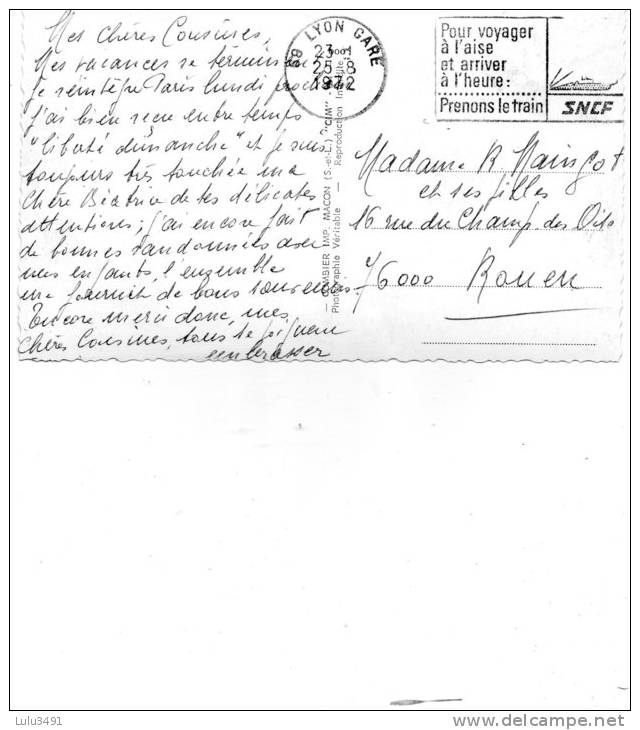 Mes chères Cousines,
Mes vacances se terminent
je réintègre Paris lundi prochain
j'ai bien reçu entre temps
"liberté dimanche" et je suis
toujours très touchée ma
chère Béatrice de tes délicates
attentions; j'ai encore fait
de bonnes randonnées avec
mes enfants, l'ensemble
me fournit de bons souvenirs.
Encore merci donc, mes
chères Cousines, tous se joignent
embrasser
69 LYON GARE
23H
25-8
1972
Pour voyager
à l'aise
et arriver
à l'heure:
Prenons le train
SNCF
COMBIER IMP. MACON (S.-et-L.) "CIM"
Photographie Véritable — Reproduction Interdite
Madame R. Maingot
et ses filles
16 rue du Champ des Ois
76000 Rouen
Lulu3491
delcampe.net